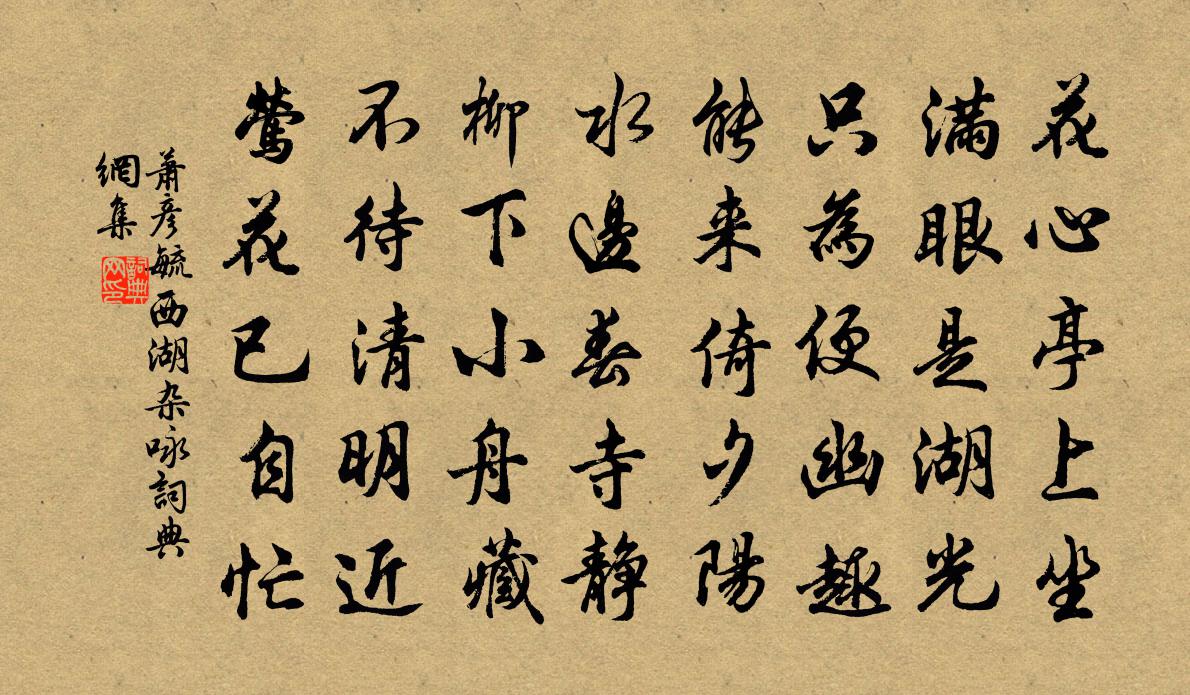 花心亭上坐
满眼是湖光
只為便幽趣
能来倚夕陽
水邊春寺静
柳下小舟藏
不待清明近
鶯花已自忙
萧彦毓西湖杂咏詞典
網集
詞典
网印